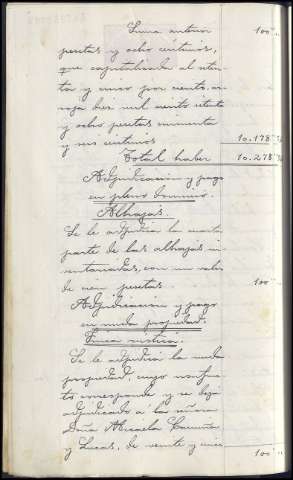 Suma anterior 100"
pesetas y ocho centimos,
que capitalizada al
y cinco por ciento,
diez mil ciento setenta
y ocho pesetas
y seis centimos 10.178
Total haber 10.278
Adjudicacion y pago
en pleno dominio.
Alhajas.
Se le adjudica la cuarta
parte de las alhajas in-
ventariadas, con un valor
de cien pesetas. 100"
Adjudicacion y pago
en nuda propiedad.
Finca rustica.
Se le adjudica la nuda
propiedad, cuyo usufruc-
to corresponde y se deja
adjudicado a la señora
Doña Micaela
y Lucas, de veinte y cinco
100"